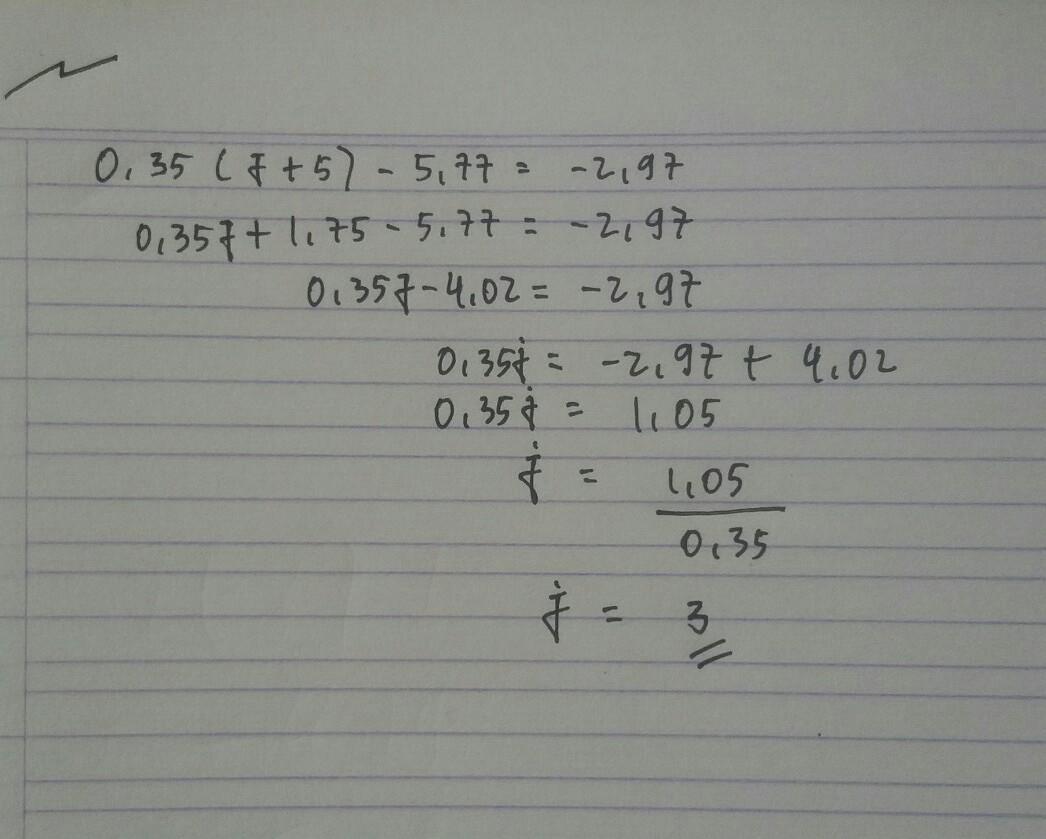 0,35 (j + 5) - 5,77 = -2,97
0,35j + 1,75 - 5,77 = -2,97
0,35j - 4,02 = -2,97
0,35j = -2,97 + 4,02
0,35j = 1,05
j = 1,05
0,35
j = 3